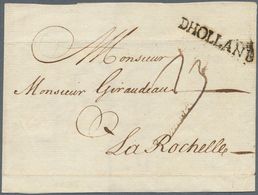 DHOLLAND
Monsieur
23
Monsieur Giraudeau
La Rochelle